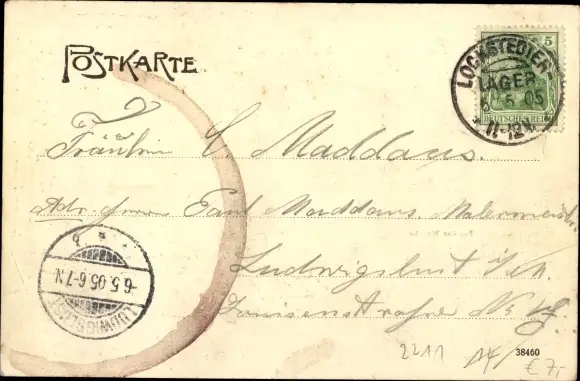 POSTKARTE
5
DEUTSCHES REICH
LOCKSTEDTER
LAGER
6.5.05
11-12V.
Fräulein E. Maddaus.
Adr. Herrn Carl Maddaus Malermeister
Ludwigslust i/M.
Kanalstraße No
LUDWIGSLUST
-6.5.05.6-7N
2211
38460
€7,-